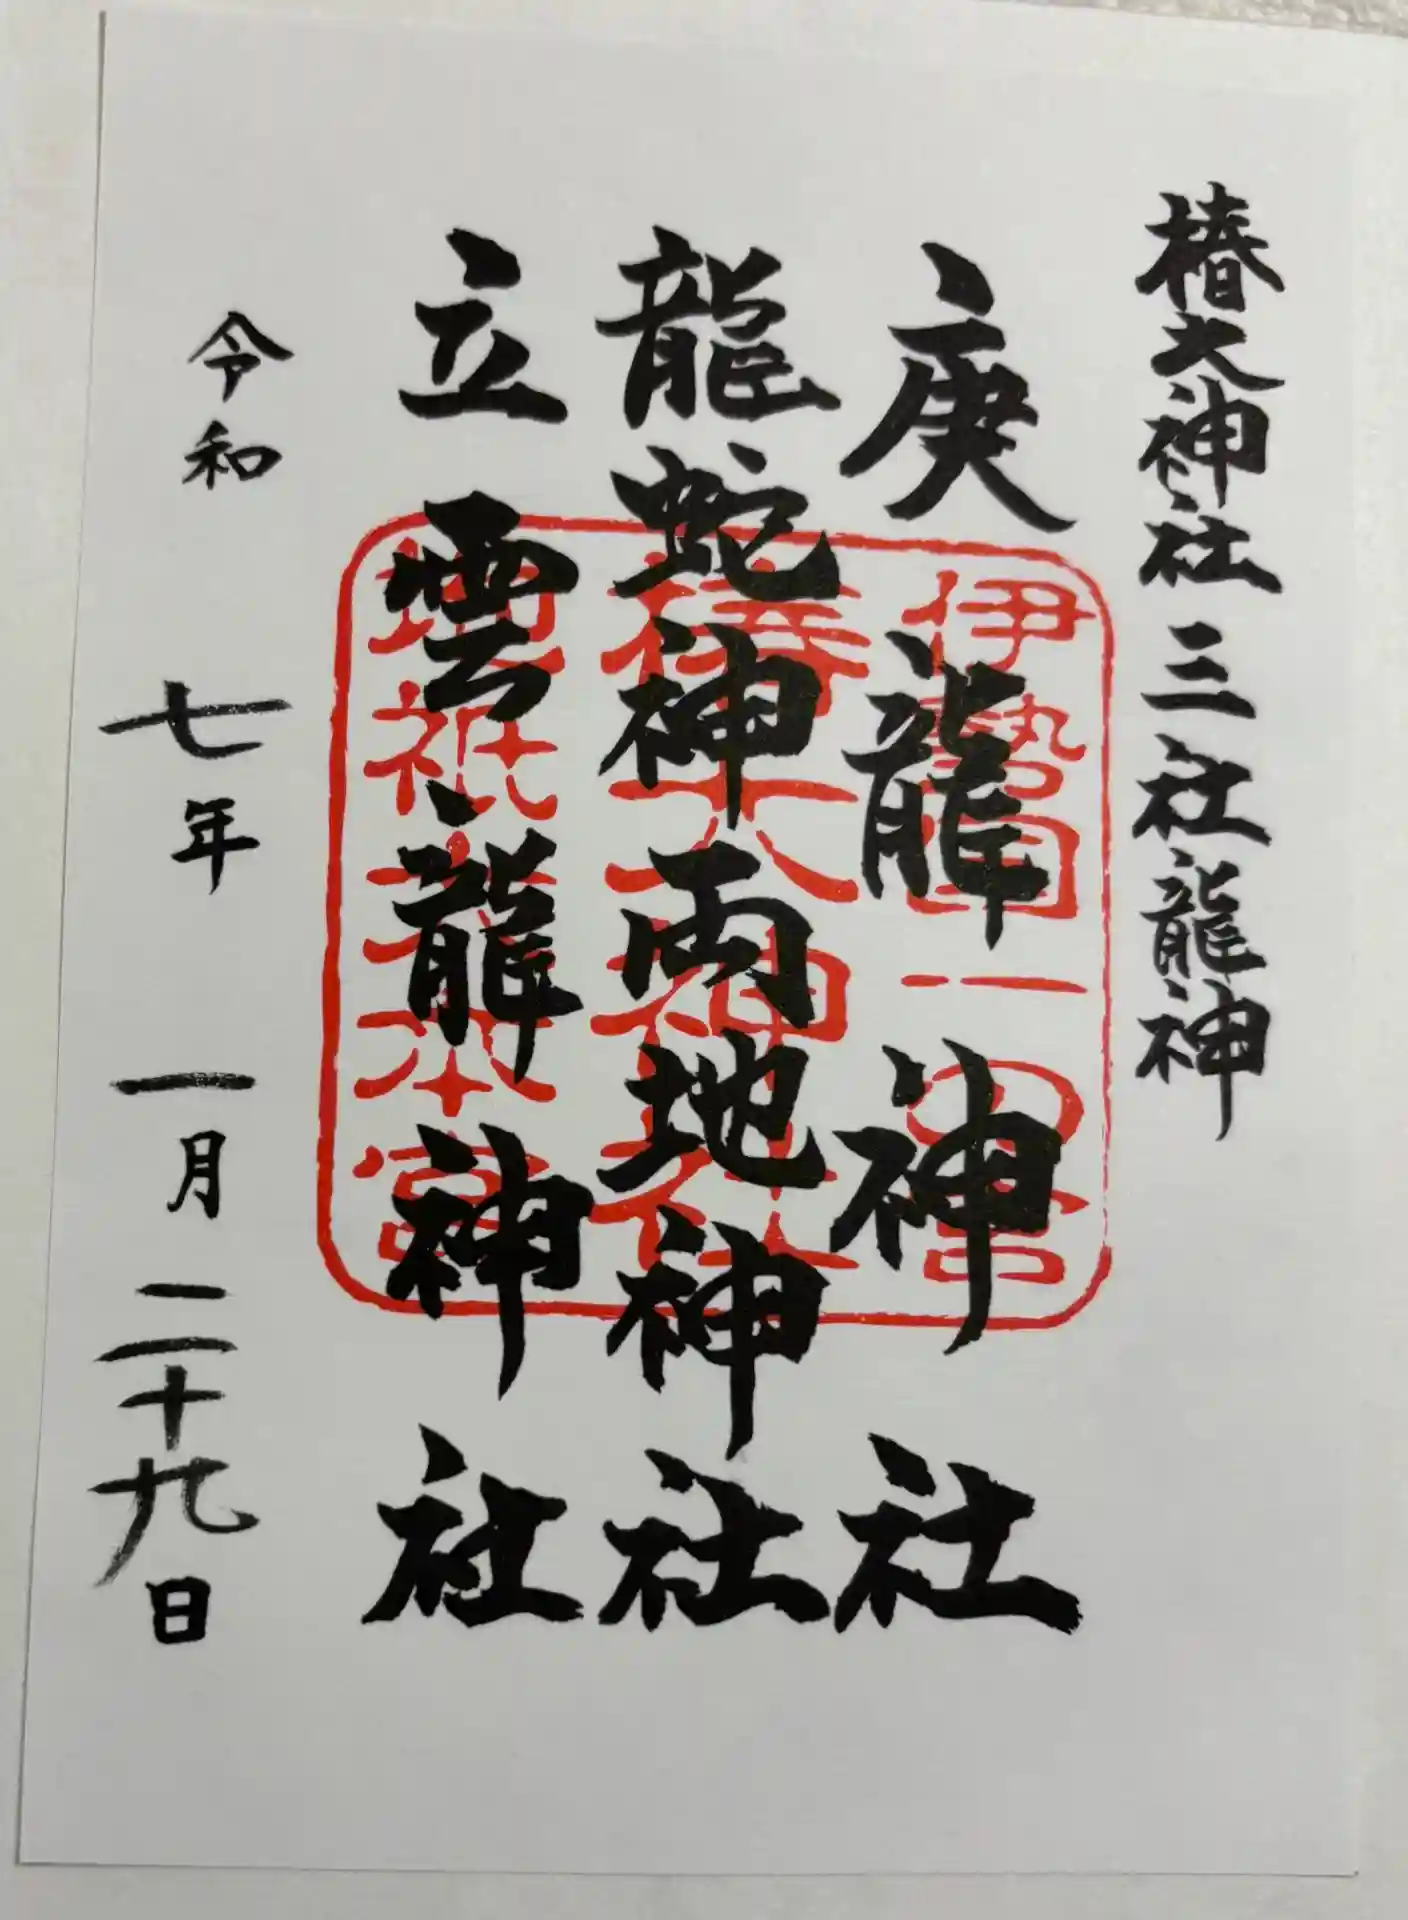 椿大神社 三社龍神
庚龍神社
龍蛇神両地神社
立雲龍神社
令和七年一月二十九日
伊勢国一の宮
椿大神社
地祇大本宮